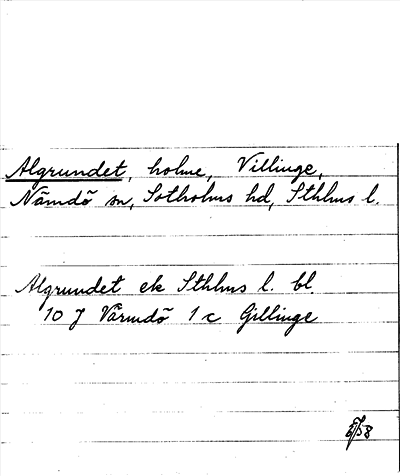 Algrundet, holme, Villinge,
Nämdö sn, Sotholms hd, Sthlms l.
Algrundet ek Sthlms l. bl.
10 J Värmdö 1 c Gillinge
58